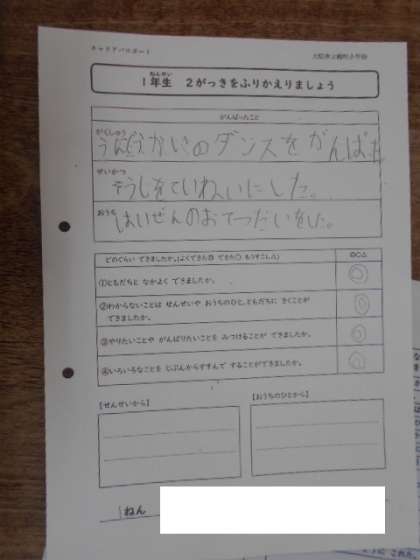 キャリアパスポート
ねんせい
1年生 2がっきをふりかえりましょう
がんばったこと
がくしゅう
うんどうかいのダンスをがんばた
せいかつ
そうじをていねいにした。
おうち
はいぜんのおてつだいをした。
どのぐらい できましたか。(よくできた◎ できた○ もうすこし△)
◎○△
①ともだちと なかよく できましたか。
◎
②わからないことは せんせいや おうちのひと、ともだちに きくことが
できましたか。
◎
③やりたいことや がんばりたいことを みつけることが できましたか。
◎
④いろいろなことを じぶんからすすんで することができましたか。
◎
【せんせいから】
【おうちのひとから】
1ねん